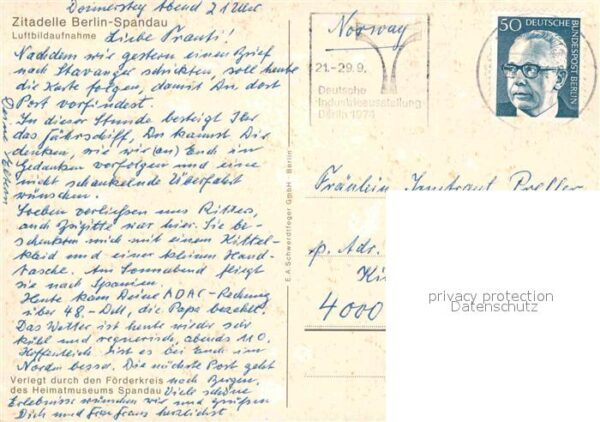 Donnerstag Abend 21 Uhr
Zitadelle Berlin-Spandau
Luftbildaufnahme
Liebe Trauti!
Nachdem wir gestern einen Brief
nach Stavanger schickten, soll heute
die Karte folgen, damit Du dort
Post vorfindest.
In dieser Stunde besteigt Ihr
das Fährschiff, Du kannst Dir
denken, wie wir (an) Euch im
Gedanken verfolgen und eine
nicht schaukelnde Überfahrt
wünschen.
Soeben verliessen uns Ritters,
auch Brigitte war hier. Sie be-
schenkten mich mit einem Kittel-
kleid und einer kleinen Hand-
tasche. Am Sonnabend fliegt
sie nach Spanien.
Heute kam Deine ADAC-Rechnung
über 48.- die Papa bezahlt.
Das Wetter ist heute wieder sehr
kühl und regnerisch, abends 11°.
Hoffentlich ist es bei Euch im
Norden besser. Die nächste Post geht
nach Bergen.
Viele schöne
Erlebnisse wünschen wir und grüßen
Dich und Frau herzlichst
Deine Eltern
Verlegt durch den Förderkreis
des Heimatmuseums Spandau
E.A. Schwerdtfeger GmbH · Berlin
Norway
21.-29.9.
Deutsche
Industrieausstellung
Berlin 1974
50 DEUTSCHE
BUNDESPOST BERLIN
Fräulein
p. Adr.
4000
privacy protection
Datenschutz